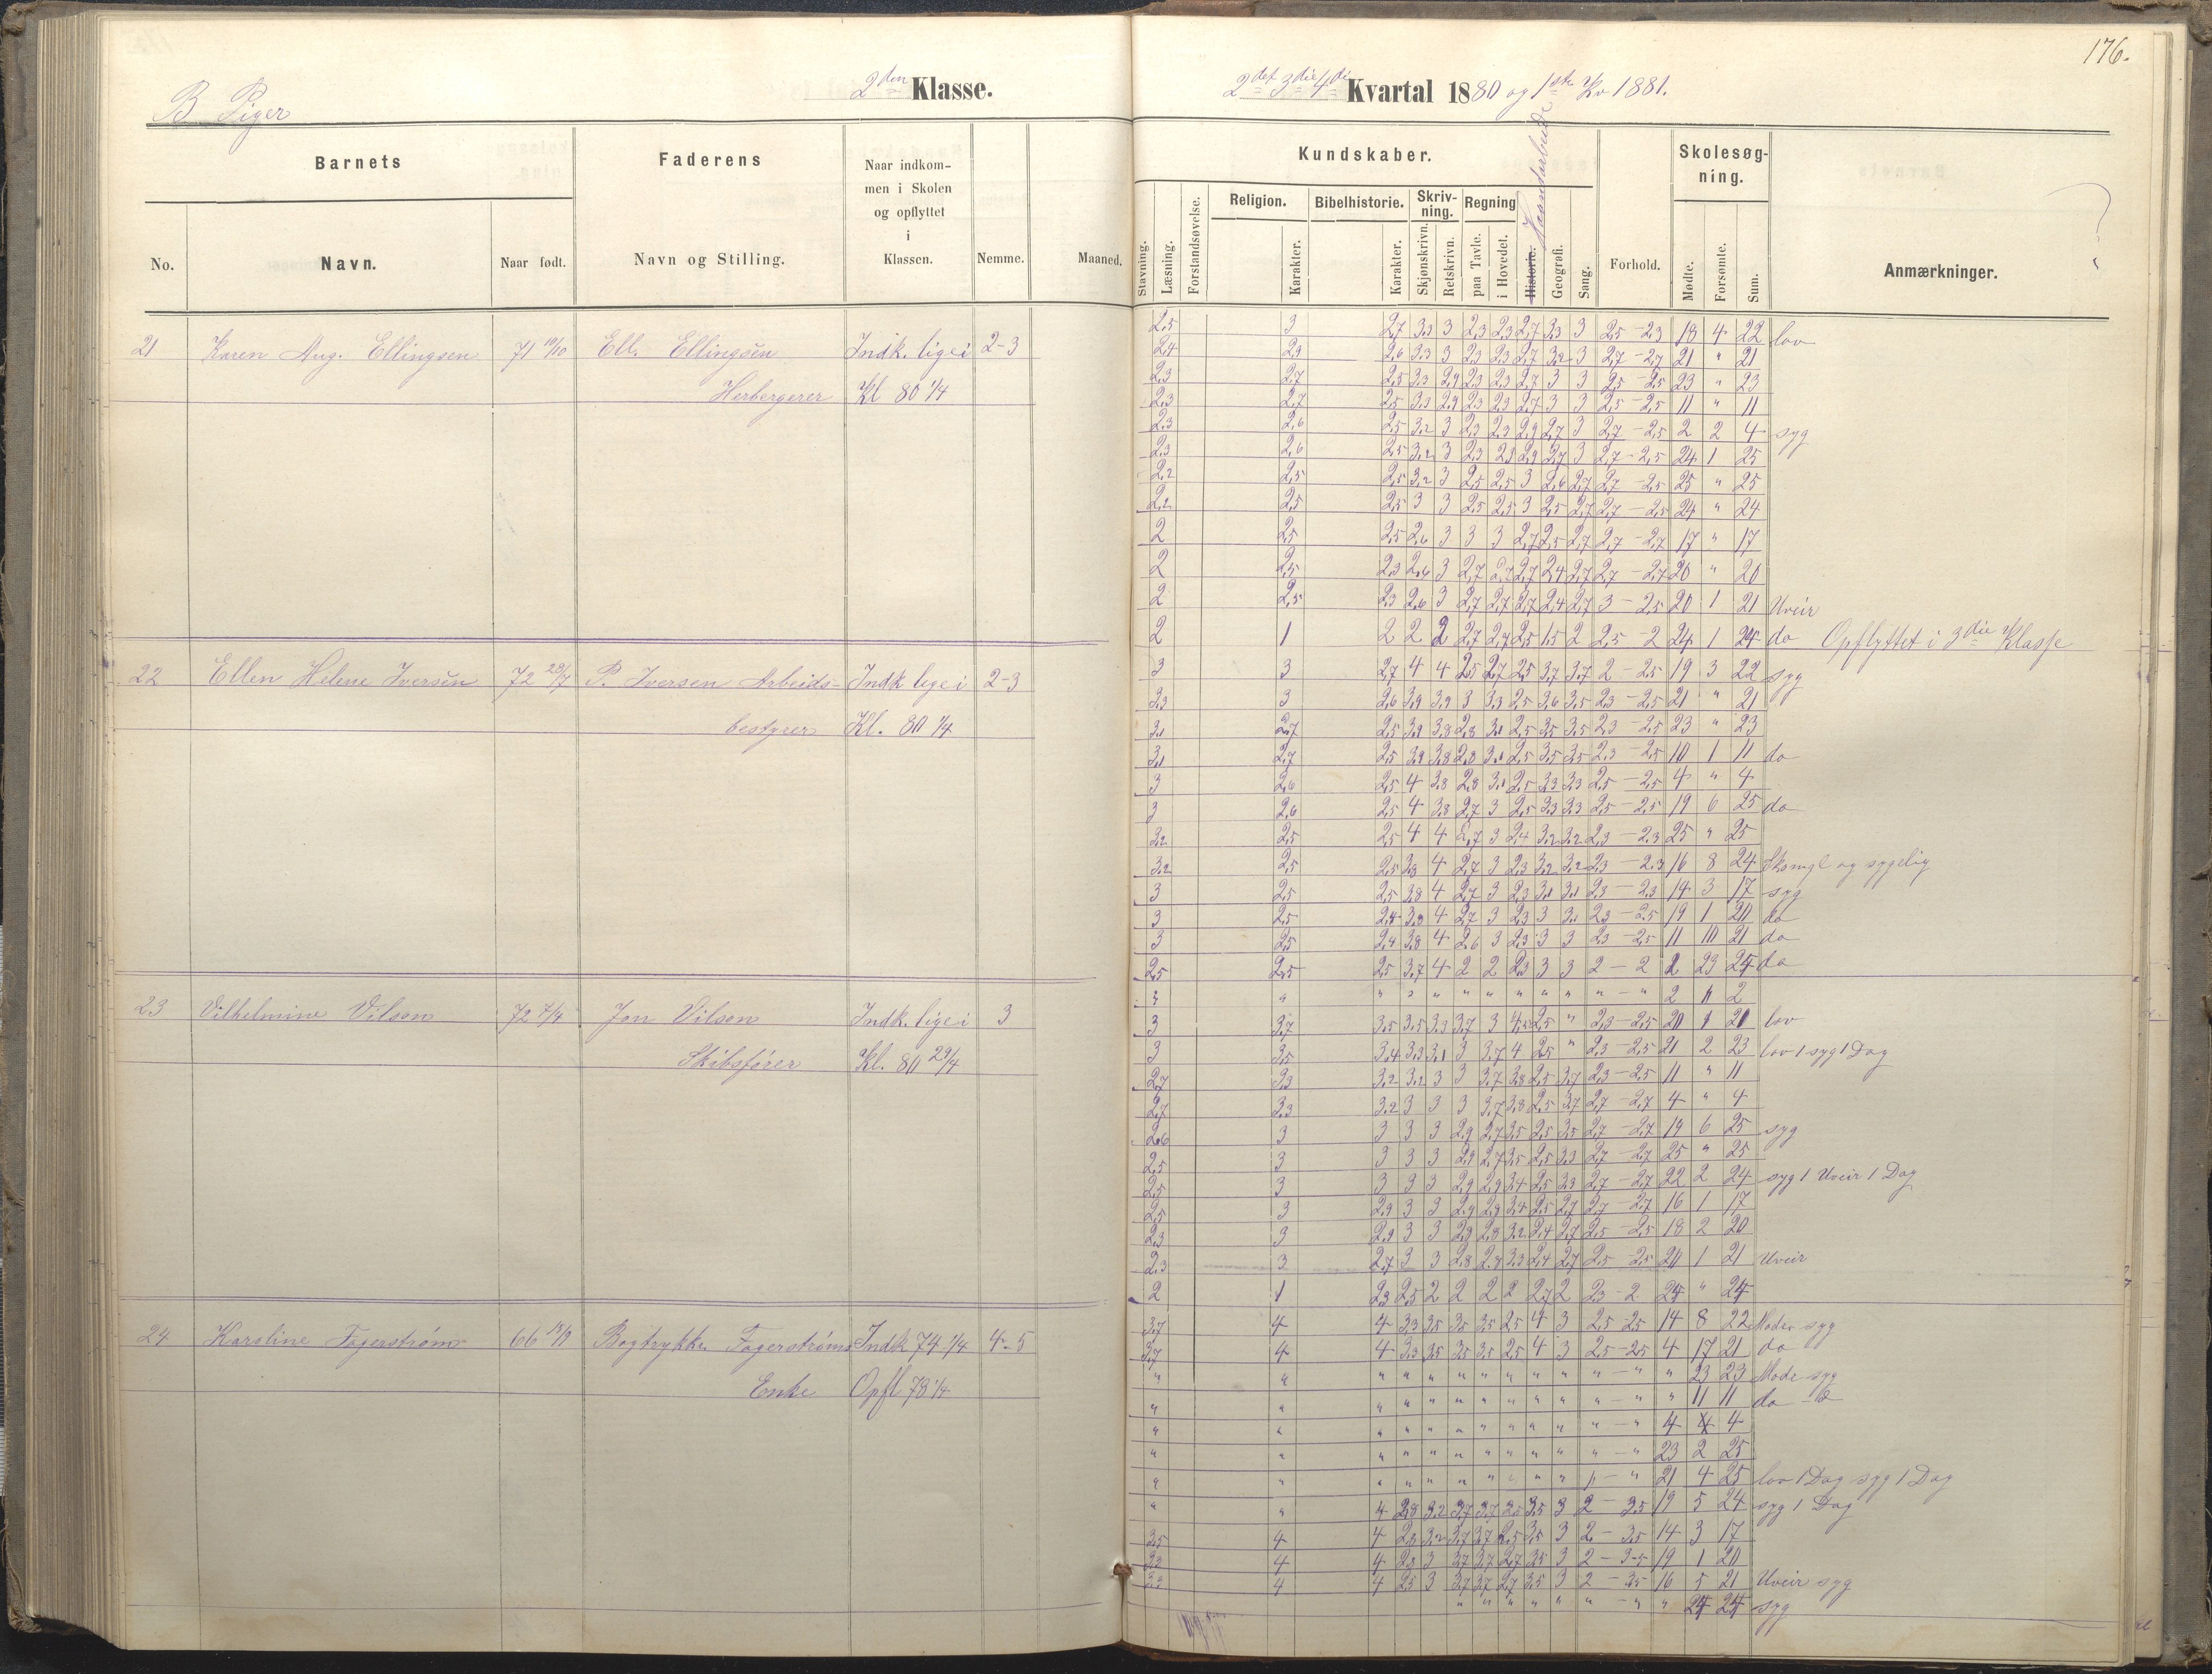 176.
B Piger
2den Klasse.
2det 3die 4de Kvartal 1880 og 1ste Kv 1881.
Barnets
Faderens
Naar indkommen i Skolen og opflyttet i Klassen.
Nemme.
Maaned.
No.
Navn.
Naar født.
Navn og Stilling.
Kundskaber.
Skolesøgning.
Stavning.
Læsning.
Forstandsøvelse.
Religion.
Karakter.
Bibelhistorie.
Karakter.
Skrivning.
Skjønskrivn.
Retskrivn.
Regning
paa Tavle.
i Hovedet.
Historie.
Haandarbeide
Geografi.
Sang.
Forhold.
Mødte.
Forsømte.
Sum.
Anmærkninger.
21 Karen Aug. Ellingsen 71 Ell. Ellingsen Indk. lige i 2-3
Herbergerer Kl 80 1/4
2,5 3 2,7 3,3 3 2,3 2,3 2,7 3,3 3 2,5 - 2,3 18 4 22 lov
2,4 2,9 2,6 3,3 3 2,3 2,3 2,7 3,2 3 2,7 - 2,7 21 " 21
2,3 2,7 2,5 3,3 2,9 2,3 2,3 2,7 3 3 2,5 - 2,5 23 " 23
2,3 2,7 2,5 3,3 2,9 2,3 2,3 2,7 3 3 2,5 - 2,5 11 " 11
2,3 2,6 2,5 3,2 3 2,3 2,3 2,9 2,7 3 2,7 - 2,5 2 2 4 syg
2,3 2,6 2,5 3,2 3 2,3 2,9 2,7 3 2,7 - 2,5 24 1 25
2,2 2,5 2,5 3,2 3 2,5 2,5 3 2,6 2,7 2,7 - 2,5 25 " 25
2,2 2,5 2,5 3 3 2,5 2,5 3 2,5 2,7 2,7 - 2,5 24 " 24
2 2,5 2,5 2,6 3 3 3 2,7 2,5 2,7 2,7 - 2,7 17 " 17
2 2,5 2,3 2,6 3 2,7 2,7 2,7 2,4 2,7 2,7 - 2,7 20 " 20
2 2,5 2,3 2,6 3 2,7 2,7 2,7 2,4 2,7 3 - 2,5 20 1 21 Uveir
2 1 2 2 2 2,7 2,7 2,5 1,5 2 2,5 - 2 24 1 24 do Opflyttet i 3die Klasse
22 Ellen Helene Iversen 72 28/7 P. Iversen Arbeids- Indk lige i 2-3
bestyrer Kl. 80 1/4
3 3 2,7 4 4 2,5 2,7 2,5 3,7 3,7 2 - 2,5 19 3 22 syg
3,3 3 2,6 3,9 3,9 3 3,3 2,5 3,6 3,5 2,3 - 2,5 21 " 21
3,1 2,7 2,5 3,9 3,8 2,8 3,1 2,5 3,5 3,5 2,3 - 2,5 23 " 23
3,1 2,7 2,5 3,9 3,8 2,8 3,1 2,5 3,5 3,5 2,3 - 2,5 10 1 11 do
3 2,6 2,5 4 3,8 2,8 3,1 2,5 3,3 3,3 2,5 - 2,5 4 " 4
3 2,6 2,5 4 3,8 2,7 3 2,5 3,3 3,3 2,5 - 2,5 19 6 25 do
3,2 2,5 2,5 4 4 2,7 3 2,4 3,2 3,2 2,3 - 2,3 25 " 25
3,2 2,5 2,5 3,9 4 2,7 3 2,3 3,2 3,2 2,3 - 2,3 16 8 24 Skomgl og sygelig
3 2,5 2,5 3,8 4 2,7 3 2,3 3,1 3,1 2,3 - 2,3 14 3 17 syg
3 2,5 2,4 3,8 4 2,7 3 2,3 3 3,1 2,3 - 2,5 19 1 20 do
3 2,5 2,4 3,8 4 2,6 3 2,3 3 3 2,3 - 2,5 11 10 21 do
2,5 2,5 2,5 3,7 4 2 2 2,3 3 3 2 - 2 1 23 24 do
23 Vilhelmine Vilson 72 7/4 Jon Vilson Indk. lige i 3
Skibsfører Kl. 80 29/4
" " " " " " " " " " " - " 2 " 2
3 3,7 3,5 3,5 3,3 3,7 3 2,5 " 2,3 - 2,5 20 1 21 lov
3 3,5 3,4 3,3 3,1 3 3,7 4 2,5 " 2,3 - 2,5 21 2 23 lov 1 syg 1 Dag
2,7 3,3 3,2 3,2 3 3 3,7 3,8 2,5 3,7 2,3 - 2,5 11 " 11
2,7 3,3 3,2 3 3 3 3,7 3,8 2,5 3,7 2,7 - 2,7 4 " 4
2,6 3 3 3 3 2,9 2,7 3,5 2,5 3,5 2,7 - 2,7 19 6 25 syg
2,5 3 3 3 3 2,9 2,7 3,5 2,5 3,3 2,7 - 2,7 25 " 25
2,5 3 3 3 3 2,9 2,9 3,4 2,5 3,3 2,7 - 2,7 22 2 24 syg 1 Uveir 1 Dag
2,5 3 2,9 3 3 2,9 2,9 3,4 2,5 2,7 2,7 - 2,7 16 1 17
2,3 3 2,9 3 3 2,9 2,8 3,2 2,4 2,7 2,5 - 2,5 18 2 20
2,3 3 2,7 3 3 2,8 2,8 3,3 2,4 2,7 2,5 - 2,5 20 1 21 Uveir
2 1 2,3 2,5 2 2 2 2 2,7 2 2,3 - 2 24 " 24
24 Karoline Fagerstrøm 66 Bogtrykk. Fagerstrøms Indk 74 1/4 4-5
Enke Opfl 78 1/4
3,7 4 4 3,3 3,5 3,5 3,5 2,5 4 3 2,5 - 2,5 14 8 22 Moder syg
3,7 4 4 3,3 3,5 3,5 3,5 2,5 4 3 2,5 - 2,5 4 17 21 do
" " " " " " " " " " " - " " 23 23 Mode syg
" " " " " " " " " " " - " " 11 11 do
" " " " " " " " " " " - " 4 4
" " " " " " " " " " " - " 23 2 25
" " " " " " " " " " " - " 21 4 25 lov 1 Dag syg 1 Dag
" " 4 2,8 3,2 3,7 3,7 2,5 3,5 3 2 - 3,5 19 5 24 syg 1 Dag
3,5 4 4 2,8 3,2 3,7 3,7 2,5 3,5 3 2 - 3,5 14 3 17
3,3 4 4 2,8 3 3,7 3,7 2,7 3,5 3 2 - 3,5 19 1 20
3,3 4 4 2,5 3 3,7 3,7 2,7 3,5 3 2 - 3,5 16 5 21 Uveir syg
" " " " " " - " " 24 24 syg